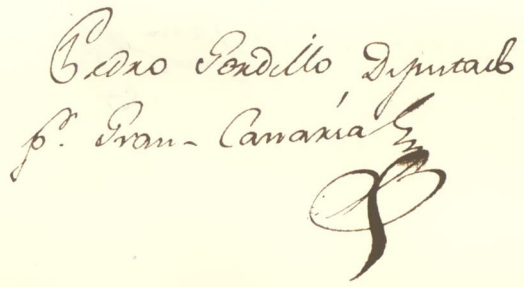 Pedro Gordillo Diputado
p.r Gran-Canaria